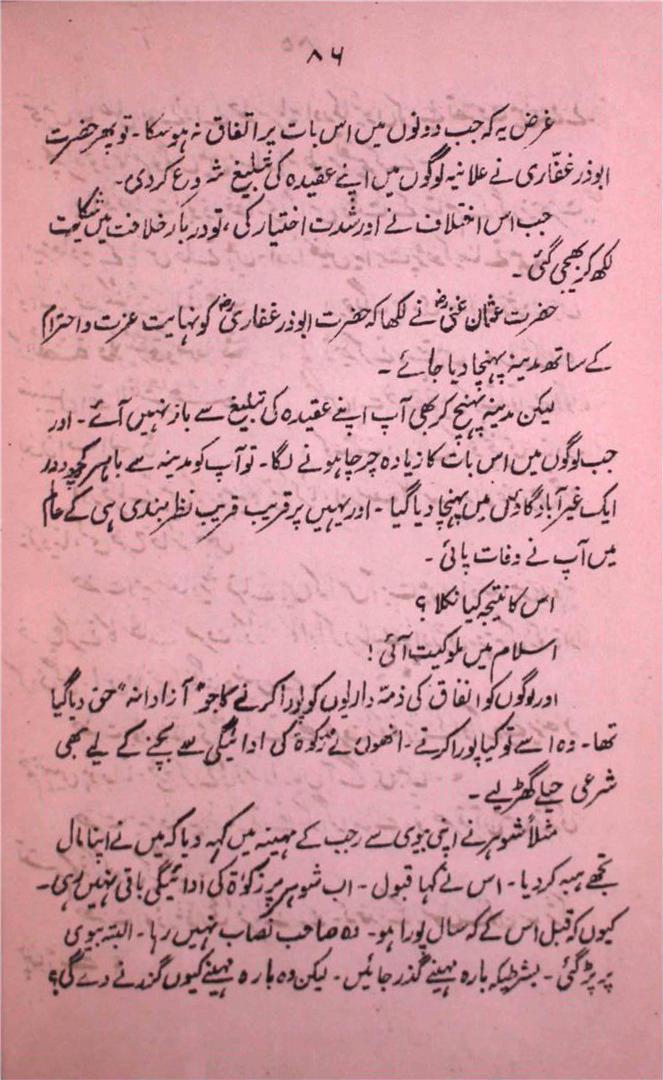 ۸۶
غرض یہ کہ جب دونوں میں اس بات پر اتفاق نہ ہو سکا۔ تو پھر حضرت
ابوذر غفّاری نے علانیہ لوگوں میں اپنے عقیدہ کی تبلیغ شروع کردی۔
جب اس اختلاف نے اور شدت اختیار کی، تو دربار خلافت میں شکایت
لکھ کر بھیجی گئی۔
حضرت عثمان غنیؓ نے لکھا کہ حضرت ابوذر غفاریؓ کو نہایت عزت و احترام
کے ساتھ مدینہ پہنچا دیا جائے۔
لیکن مدینہ پہنچ کر بھی آپ اپنے عقیدہ کی تبلیغ سے باز نہیں آئے۔ اور
جب لوگوں میں اس بات کا زیادہ چرچا ہونے لگا۔ تو آپ کو مدینہ سے باہر کچھ دور
ایک غیر آباد گاؤں میں پہنچا دیا گیا۔ اور یہیں پر قریب قریب نظر بندی ہی کے عالم
میں آپ نے وفات پائی۔
اس کا نتیجہ کیا نکلا؟
اسلام میں ملوکیت آئی!
اور لوگوں کو انفاق کی ذمہ داریوں کو پورا کرنے کا جو "آزادانہ" حق دیا گیا
تھا۔ وہ اسے تو کیا پورا کرتے۔ انھوں نے زکوٰۃ کی ادائیگی سے بچنے کے لیے بھی
شرعی حیلے گھڑ لیے۔
مثلاً شوہر نے اپنی بیوی سے رجب کے مہینہ میں کہہ دیا کہ میں نے اپنا مال
تجھے ہبہ کر دیا۔ اس نے کہا قبول۔ اب شوہر پر زکوٰۃ کی ادائیگی باقی نہیں رہی۔
کیوں کہ قبل اس کے کہ سال پورا ہو۔ وہ صاحب نصاب نہیں رہا۔ البتہ بیوی
پر پڑ گئی۔ بشرطیکہ بارہ مہینے گذر جائیں۔ لیکن وہ بارہ مہینے کیوں گذرنے دے گی؟